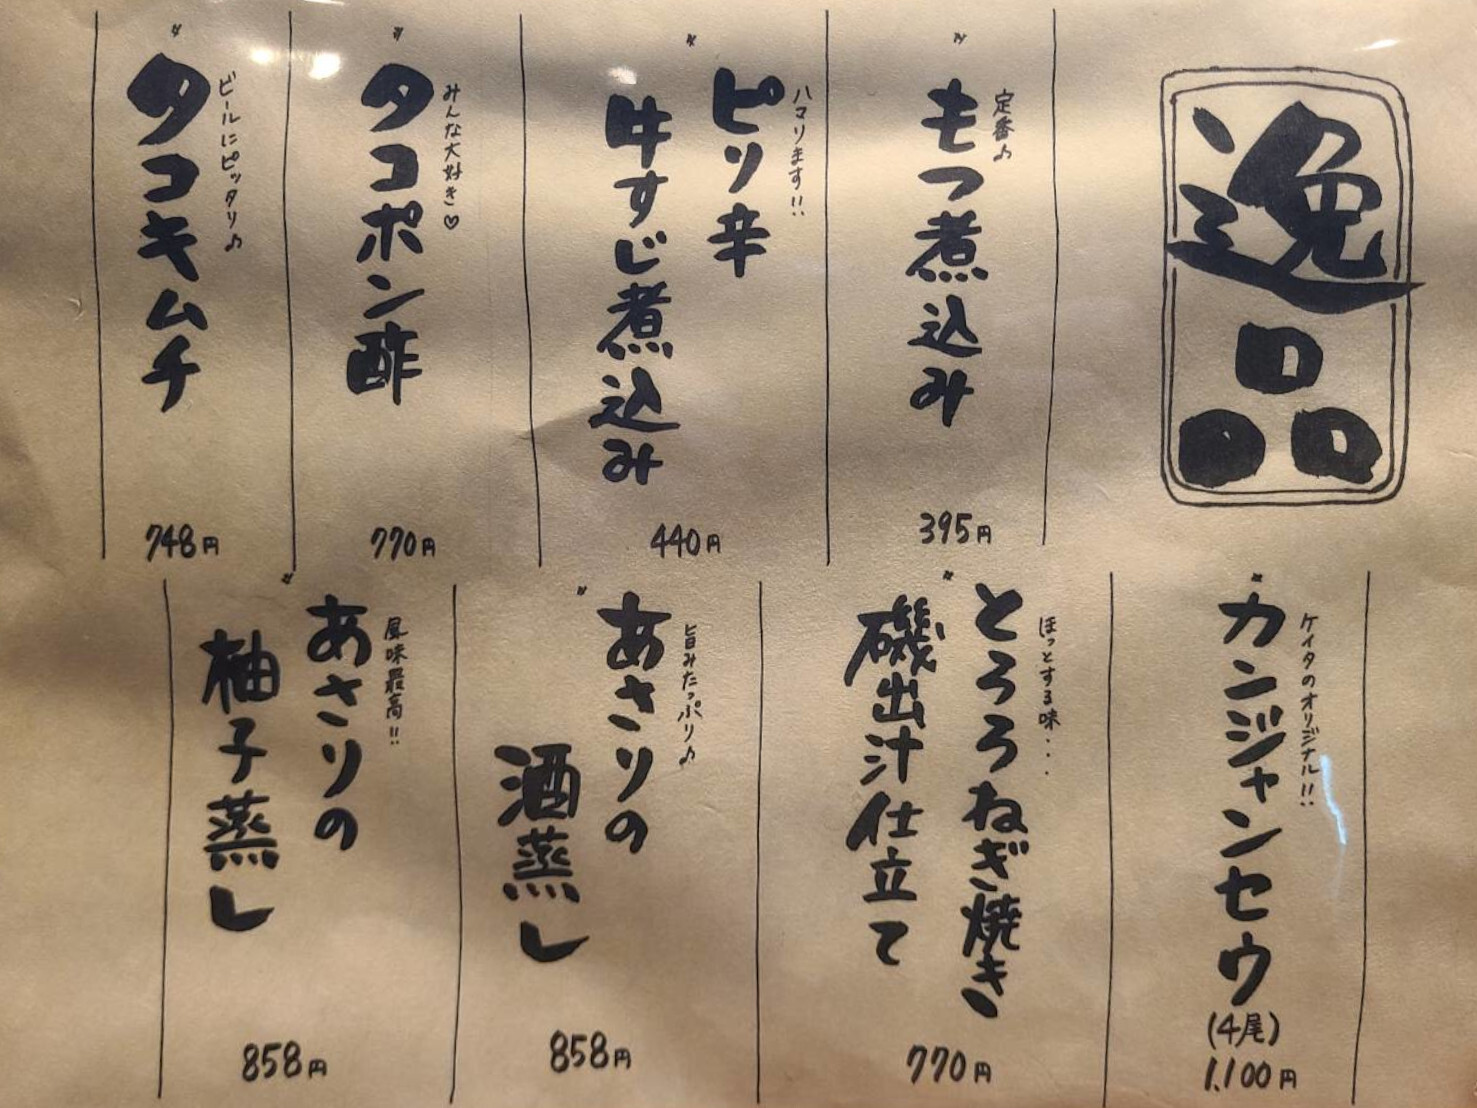 逸品
定番♪
もつ煮込み
395円
ハマります!!
ピリ辛
牛すじ煮込み
440円
みんな大好き♡
タコポン酢
770円
ビールにピッタリ♪
タコキムチ
748円
ケイタのオリジナル!!
カンジャンセウ
(4尾)
1,100円
ほっとする味...
とろろねぎ焼き
磯出汁仕立て
770円
旨みたっぷり♪
あさりの
酒蒸し
858円
風味最高!!
あさりの
柚子蒸し
858円